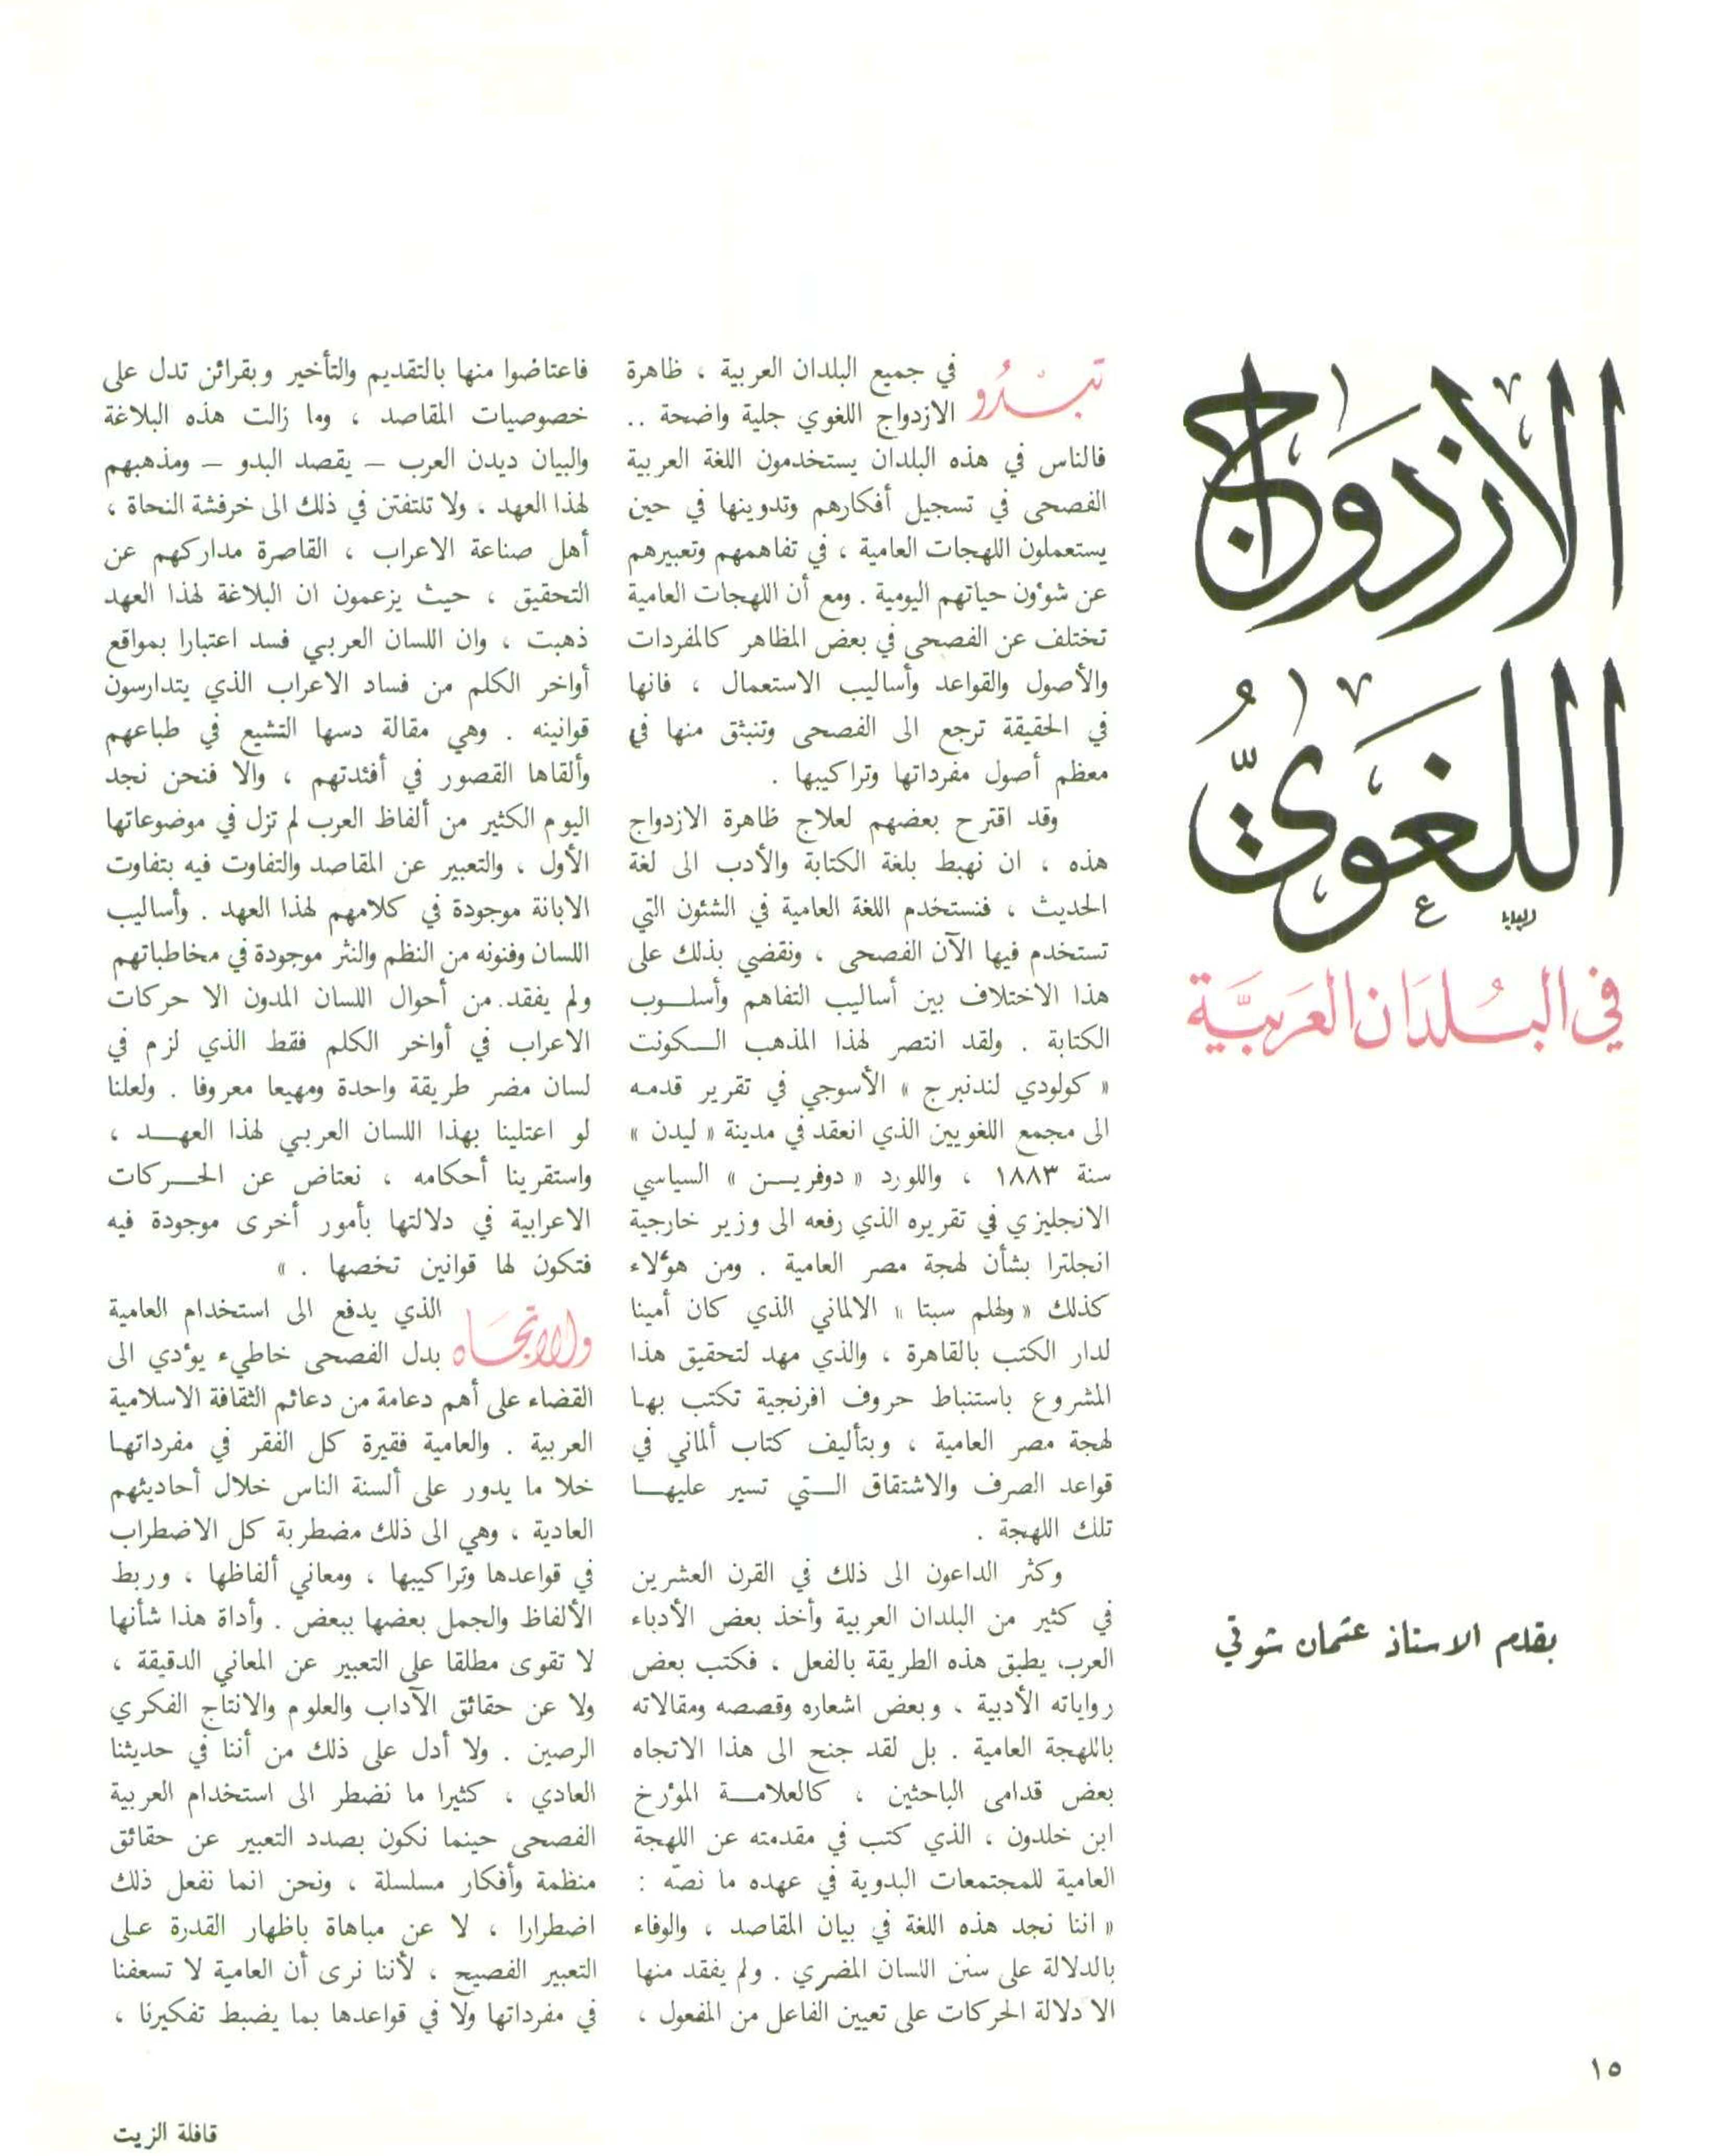 الازدواج
اللغويّ
في البلدان العربيّة
بقلم الاستاذ عثمان شوقي
تبدو في جميع البلدان العربية ، ظاهرة
الازدواج اللغوي جلية واضحة ..
فالناس في هذه البلدان يستخدمون اللغة العربية
الفصحى في تسجيل أفكارهم وتدوينها في حين
يستعملون اللهجات العامية ، في تفاهمهم وتعبيرهم
عن شؤون حياتهم اليومية . ومع أن اللهجات العامية
تختلف عن الفصحى في بعض المظاهر كالمفردات
والأصول والقواعد وأساليب الاستعمال ، فانها
في الحقيقة ترجع الى الفصحى وتنبثق منها في
معظم أصول مفرداتها وتراكيبها .
وقد اقترح بعضهم لعلاج ظاهرة الازدواج
هذه ، ان نهبط بلغة الكتابة والأدب الى لغة
الحديث ، فنستخدم اللغة العامية في الشئون التي
تستخدم فيها الآن الفصحى ، ونقضي بذلك على
هذا الاختلاف بين أساليب التفاهم وأسلوب
الكتابة . ولقد انتصر لهذا المذهب الكونت
« كولودي لندنبرج » الأسوجي في تقرير قدمه
الى مجمع اللغويين الذي انعقد في مدينة « ليدن »
سنة ١٨٨٣ ، واللورد « دوفرين » السياسي
الانجليزي في تقريره الذي رفعه الى وزير خارجية
انجلترا بشأن لهجة مصر العامية . ومن هؤلاء
كذلك « ولهلم سبتا » الالماني الذي كان أمينا
لدار الكتب بالقاهرة ، والذي مهد لتحقيق هذا
المشروع باستنباط حروف افرنجية تكتب بها
لهجة مصر العامية ، وبتأليف كتاب ألماني في
قواعد الصرف والاشتقاق التي تسير عليها
تلك اللهجة .
وكثر الداعون الى ذلك في القرن العشرين
في كثير من البلدان العربية وأخذ بعض الأدباء
العرب يطبق هذه الطريقة بالفعل ، فكتب بعض
رواياته الأدبية ، وبعض اشعاره وقصصه ومقالاته
باللهجة العامية . بل لقد جنح الى هذا الاتجاه
بعض قدامى الباحثين ، كالعلامة المؤرخ
ابن خلدون ، الذي كتب في مقدمته عن اللهجة
العامية للمجتمعات البدوية في عهده ما نصّه :
« اننا نجد هذه اللغة في بيان المقاصد ، والوفاء
بالدلالة على سنن اللسان المضري . ولم يفقد منها
الا دلالة الحركات على تعيين الفاعل من المفعول ،
فاعتاضوا منها بالتقديم والتأخير وبقرائن تدل على
خصوصيات المقاصد ، وما زالت هذه البلاغة
والبيان ديدن العرب – يقصد البدو – ومذهبهم
لهذا العهد ، ولا تلتفتن في ذلك الى خرفشة النحاة ،
أهل صناعة الاعراب ، القاصرة مداركهم عن
التحقيق ، حيث يزعمون ان البلاغة لهذا العهد
ذهبت ، وان اللسان العربي فسد اعتبارا بمواقع
أواخر الكلم من فساد الاعراب الذي يتدارسون
قوانينه . وهي مقالة دسها التشيع في طباعهم
وألقاها القصور في أفئدتهم ، والا فنحن نجد
اليوم الكثير من ألفاظ العرب لم تزل في موضوعاتها
الأول ، والتعبير عن المقاصد والتفاوت فيه بتفاوت
الابانة موجودة في كلامهم لهذا العهد . وأساليب
اللسان وفنونه من النظم والنثر موجودة في مخاطباتهم
ولم يفقد من أحوال اللسان المدون الا حركات
الاعراب في أواخر الكلم فقط الذي لزم في
لسان مضر طريقة واحدة ومهيعا معروفا . ولعلنا
لو اعتلينا بهذا اللسان العربي لهذا العهد ،
واستقرينا أحكامه ، نعتاض عن الحركات
الاعرابية في دلالتها بأمور أخرى موجودة فيه
فتكون لها قوانين تخصها . »
والاتجاه الذي يدفع الى استخدام العامية
بدل الفصحى خاطيء يؤدي الى
القضاء على أهم دعامة من دعائم الثقافة الاسلامية
العربية . والعامية فقيرة كل الفقر في مفرداتها
خلا ما يدور على ألسنة الناس خلال أحاديثهم
العادية ، وهي الى ذلك مضطربة كل الاضطراب
في قواعدها وتراكيبها ، ومعاني ألفاظها ، وربط
الألفاظ والجمل بعضها ببعض . وأداة هذا شأنها
لا تقوى مطلقا على التعبير عن المعاني الدقيقة ،
ولا عن حقائق الآداب والعلوم والانتاج الفكري
الرصين . ولا أدل على ذلك من أننا في حديثنا
العادي ، كثيرا ما نضطر الى استخدام العربية
الفصحى حينما نكون بصدد التعبير عن حقائق
منظمة وأفكار مسلسلة ، ونحن انما نفعل ذلك
اضطرارا ، لا عن مباهاة باظهار القدرة على
التعبير الفصيح ، لأننا نرى أن العامية لا تسعفنا
في مفرداتها ولا في قواعدها بما يضبط تفكيرنا ،
١٥
قافلة الزيت